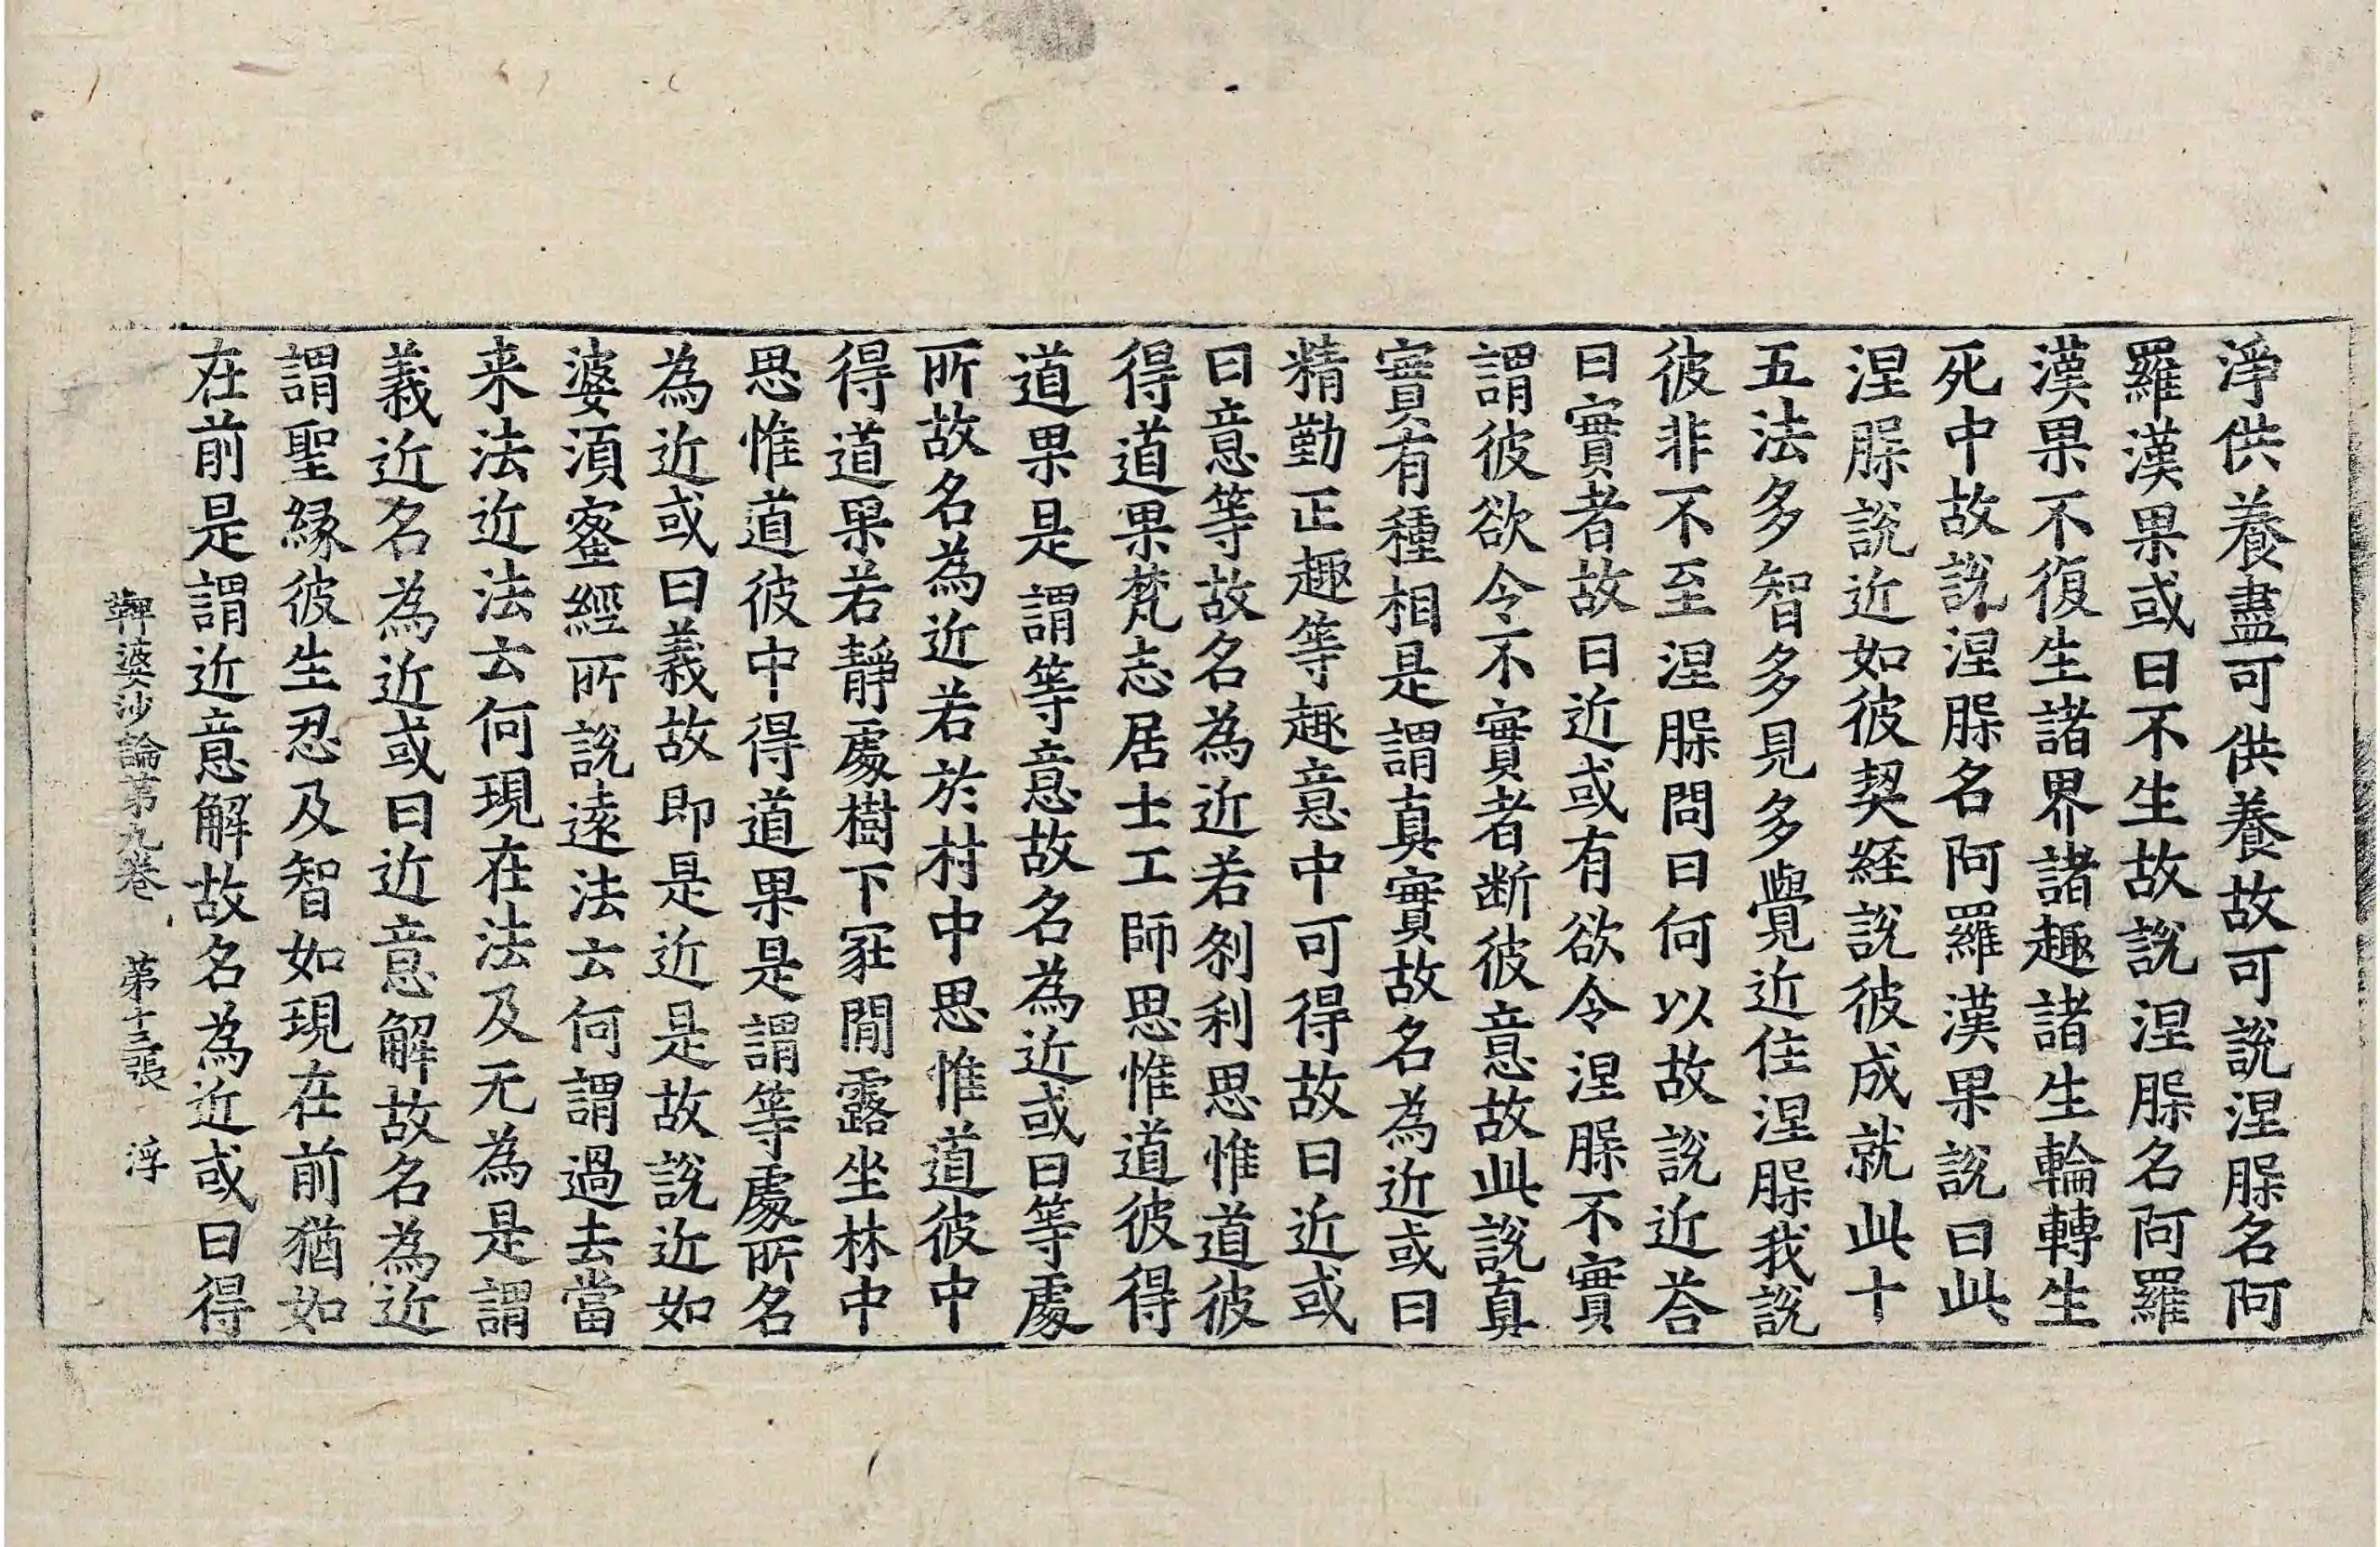 淨供養盡可供養故可說涅槃名阿
羅漢果或曰不生故說涅槃名阿羅
漢果不復生諸界諸趣諸生輪轉生
死中故說涅槃名阿羅漢果說曰此
涅槃說近如彼契經說彼成就此十
五法多智多見多覺近住涅槃我說
彼非不至涅槃問曰何以故說近荅
曰實者故曰近或有欲令涅槃不實
謂彼欲令不實者断彼意故此說真
實有種相是謂真實故名為近或曰
精勤正趣等趣意中可得故曰近或
曰意等故名為近若剎利思惟道彼
得道果梵志居士工師思惟道彼得
道果是謂等意故名為近或曰等處
所故名為近若於村中思惟道彼中
得道果若靜處樹下冢間露坐林中
思惟道彼中得道果是謂等處所名
為近或曰義故即是近是故說近如
婆須蜜經所說遠法云何謂過去當
来法近法云何現在法及无為是謂
義近名為近或曰近意解故名為近
謂聖縁彼生忍及智如現在前猶如
在前是謂近意解故名為近或曰得
鞞婆沙論第九卷 第十三張 浮